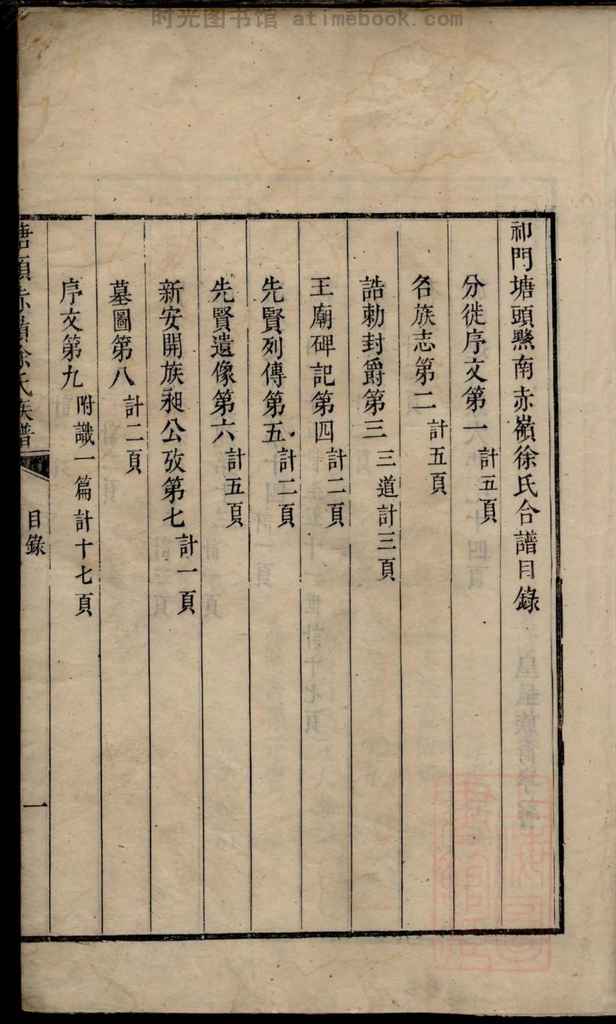 时光图书馆 atimebook.com
祁門塘頭黟南赤嶺徐氏合譜目錄
分徙序文第一 計五頁
名族志第二 計五頁
誥勅封爵第三 三道計三頁
王廟碑記第四 計二頁
先賢列傳第五 計二頁
先賢遺像第六 計五頁
新安開族昶公攷第七 計一頁
墓圖第八 計二頁
序文第九 附識一篇計十七頁
塘頭赤嶺徐氏族譜 目錄 一